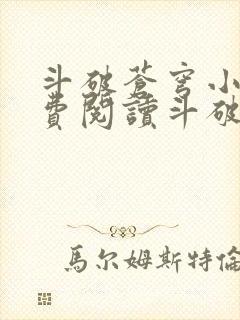 斗破蒼穹小
費閱讀斗破
馬尔姆斯特倫